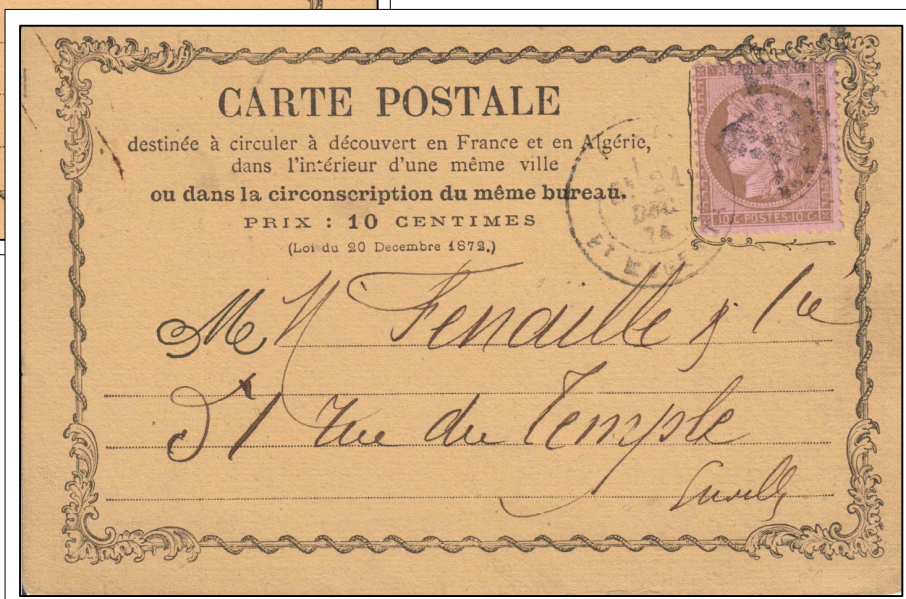 CARTE POSTALE
destinée à circuler à découvert en France et en Algérie,
dans l'intérieur d'une même ville
ou dans la circonscription du même bureau.
PRIX : 10 CENTIMES
(Loi du 20 Decembre 1872.)
10 C·POSTES·10 C
21
DÉC
74
Fenaille & Cie
rue du Temple